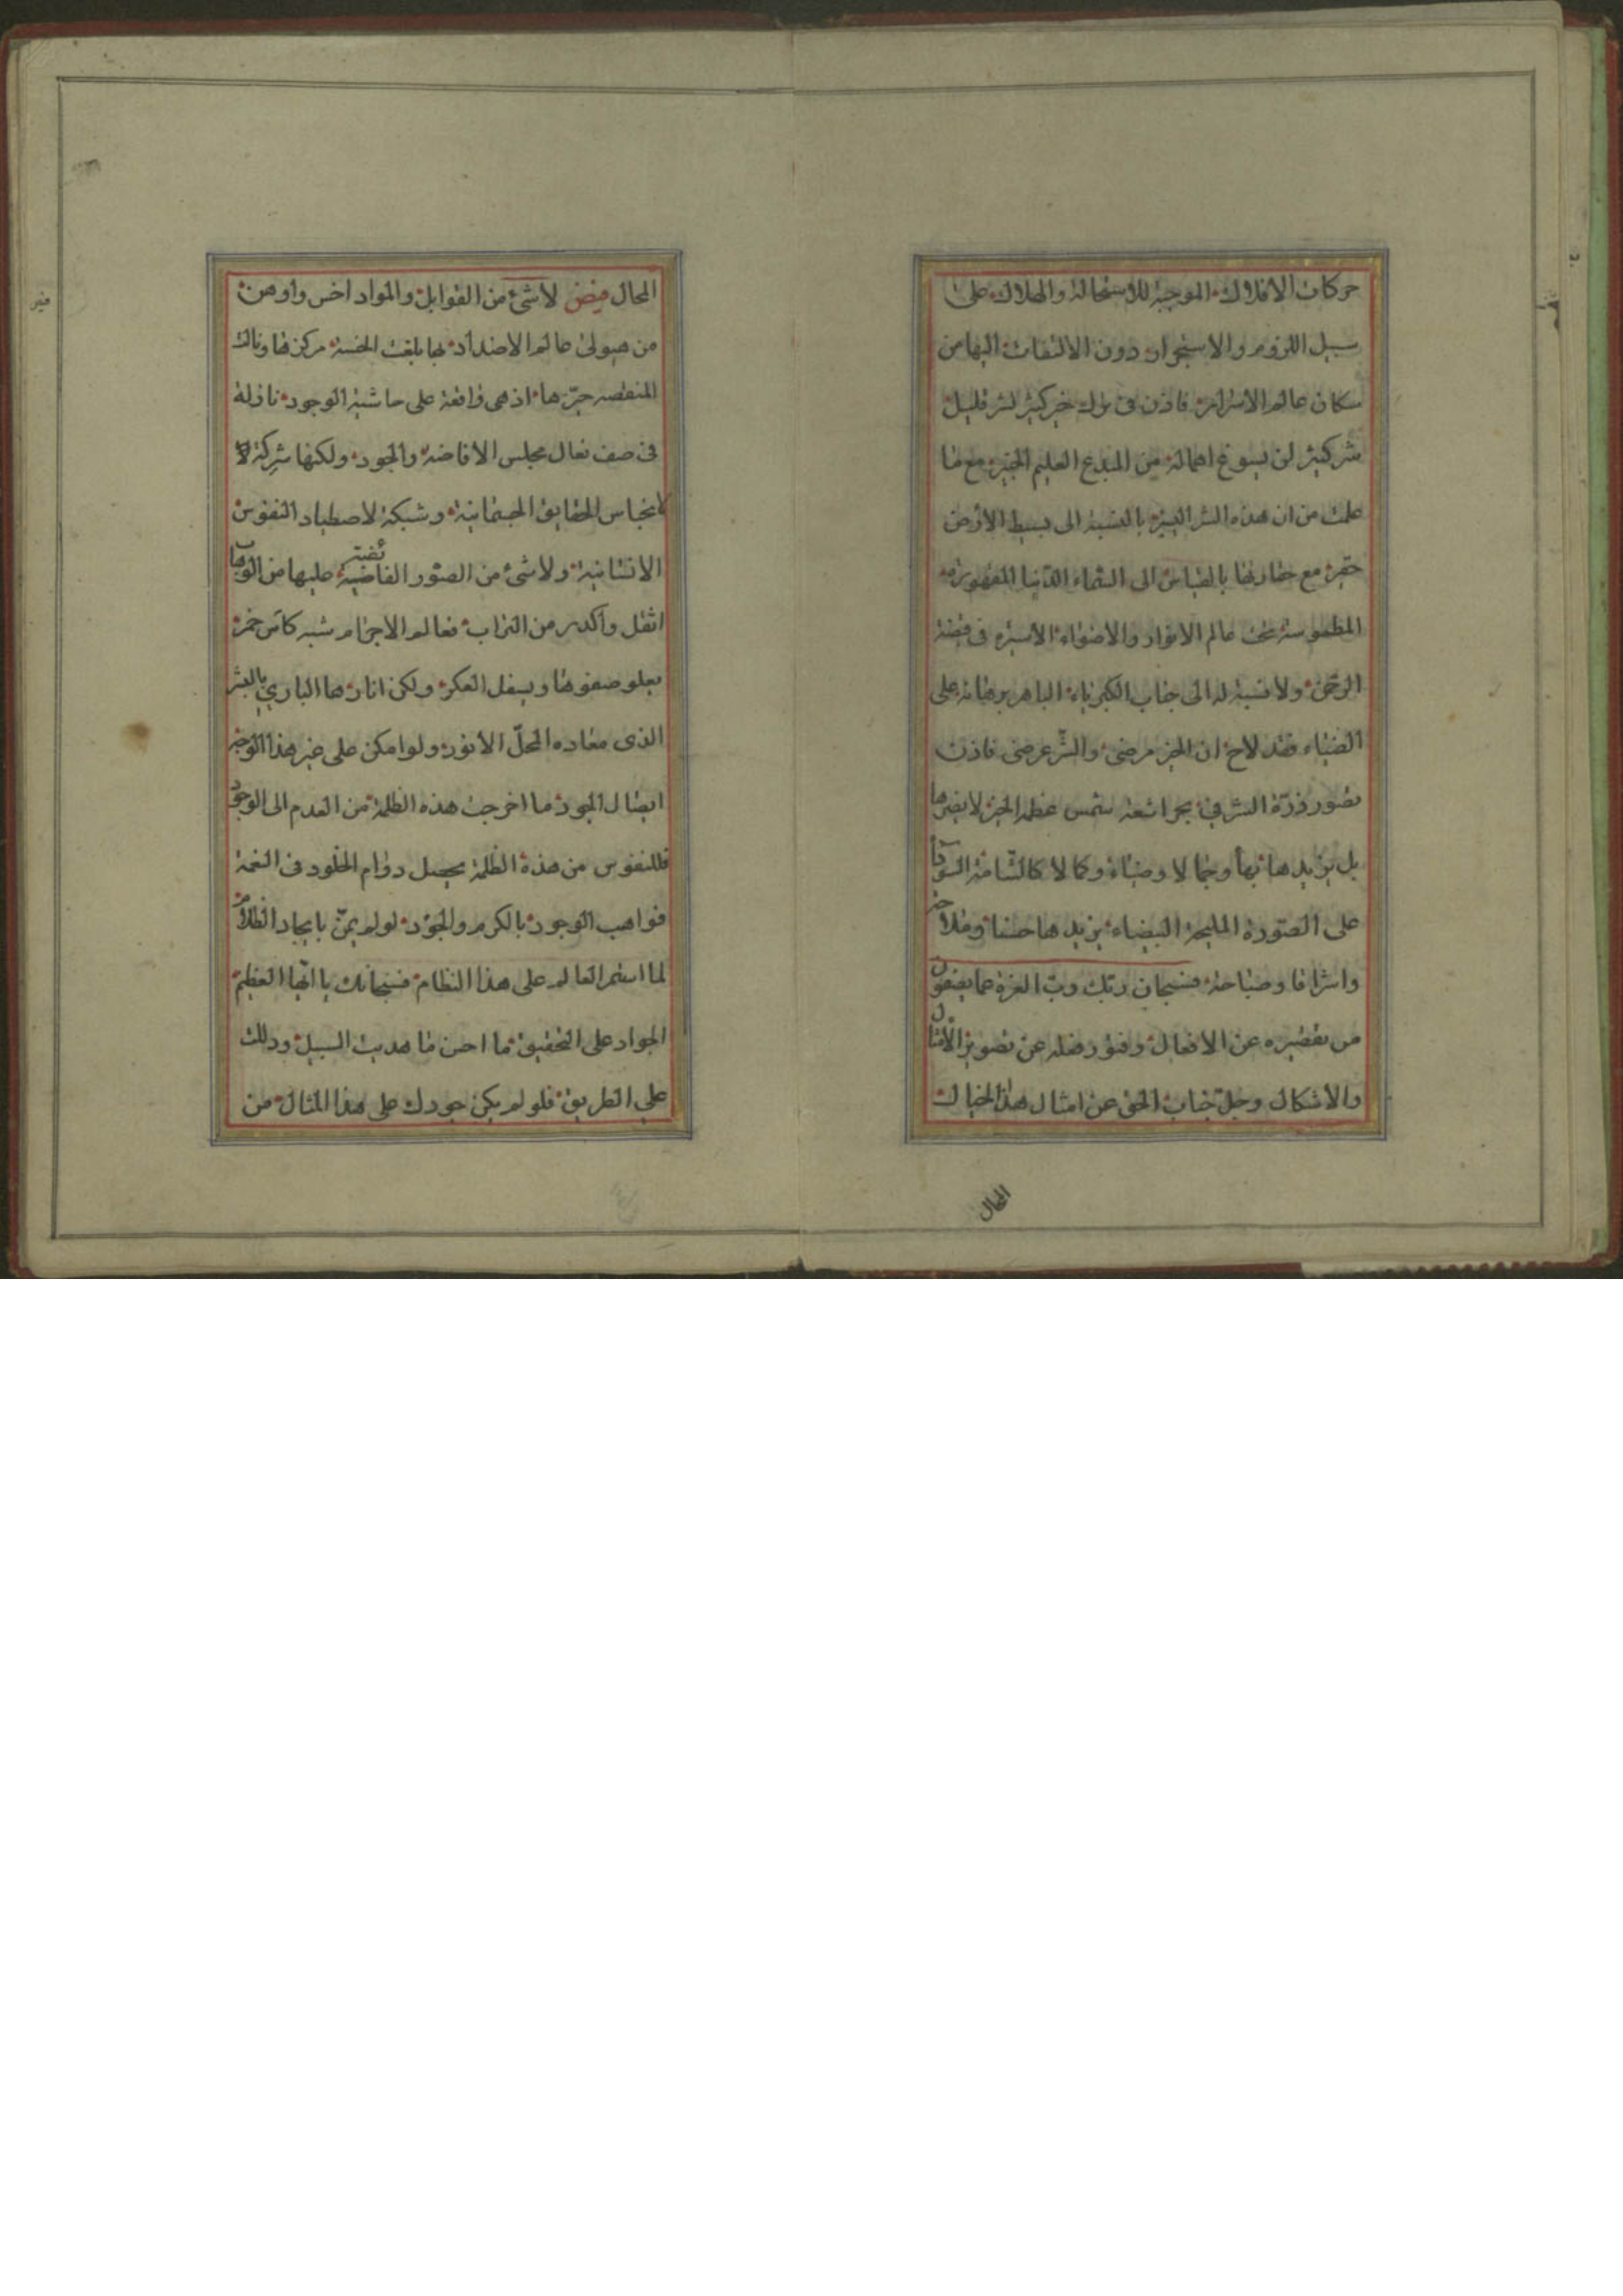 حركات الافلاك الموجبة للاستحالة والهلاك على
سبيل اللزوم والاستجرار دون الالتفات اليها من
سكان عالم الاسرار فاذن فى ترك خير كثير لشر قليل
شر كثير لن يسوغ اهماله من المبدع العليم الخبير مع ما
علمت من ان هذه الشر اليسيره بالنسبة الى بسيط الارض
حقيرة مع حقارتها بالقياس الى السماء الدنيا المقهورة
المطموسة تحت عالم الانوار والاضواء الأسيره فى قبضة
الرحمن ولا نسبة له الى جناب الكبرياء الباهر برهانه على
الضياء فقد لاح ان الخير مرضى والشر عرضى فاذن
تصور ذرّة الشر في بحر اشعة شمس عظمة الخير لا يضرها
بل يزيدها بهاً وجمالا وضياء وكمالا كالشّامة السوداً
على الصّورة المليحة البيضاء يزيدها حسنا وملاحة
واشراقا وصباحة فسبحان ربّك ربّ العزة عما يصفون
من تقصيره عن الافعال وفتور فضله عن تصوير الأمثال
والاشكال وجلّ جناب الحق عن امثال هذا الخيال
المحال
المحال فيض لا شئ من القوابل والمواد اخس واوهن
من هيولى عالم الاضداد بها بلغت الخسة مركزها ونالت
المنقصه حيّزها اذ هى واقعة على حاشية الوجود نازلة
فى صف نعال مجلس الافاضة والجود ولكنها شركة لا
لانجباس الحقايق الجسمانية وشبكة لاصطياد النفوس
الانسانية ولا شئ من الصّور الفاضية عليها من الوهاب
اثقل واكدر من التراب فعالم الاجرام شبه كاس خمر
يعلو صفوها ويسفل العكر ولكن انارها الباري بالبشر
الذى معاده المحلّ الأنور ولو امكن على غير هذا الوجه
ايصال الجود ما اخرجت هذه الظلمة من العدم الى الوجود
فللنفوس من هذه الظلمة يحصل دوام الخلود فى النعمة
فواهب الوجود بالكرم والجود لو لم يمنّ بايجاد الظلام
لما استمر العالم على هذا النظام فسبحانك يا ايّها العظيم
الجواد على التحقيق ما احسن ما هديت السبيل ودللت
على الطريق فلو لم يكن جودك على هذا المثال من